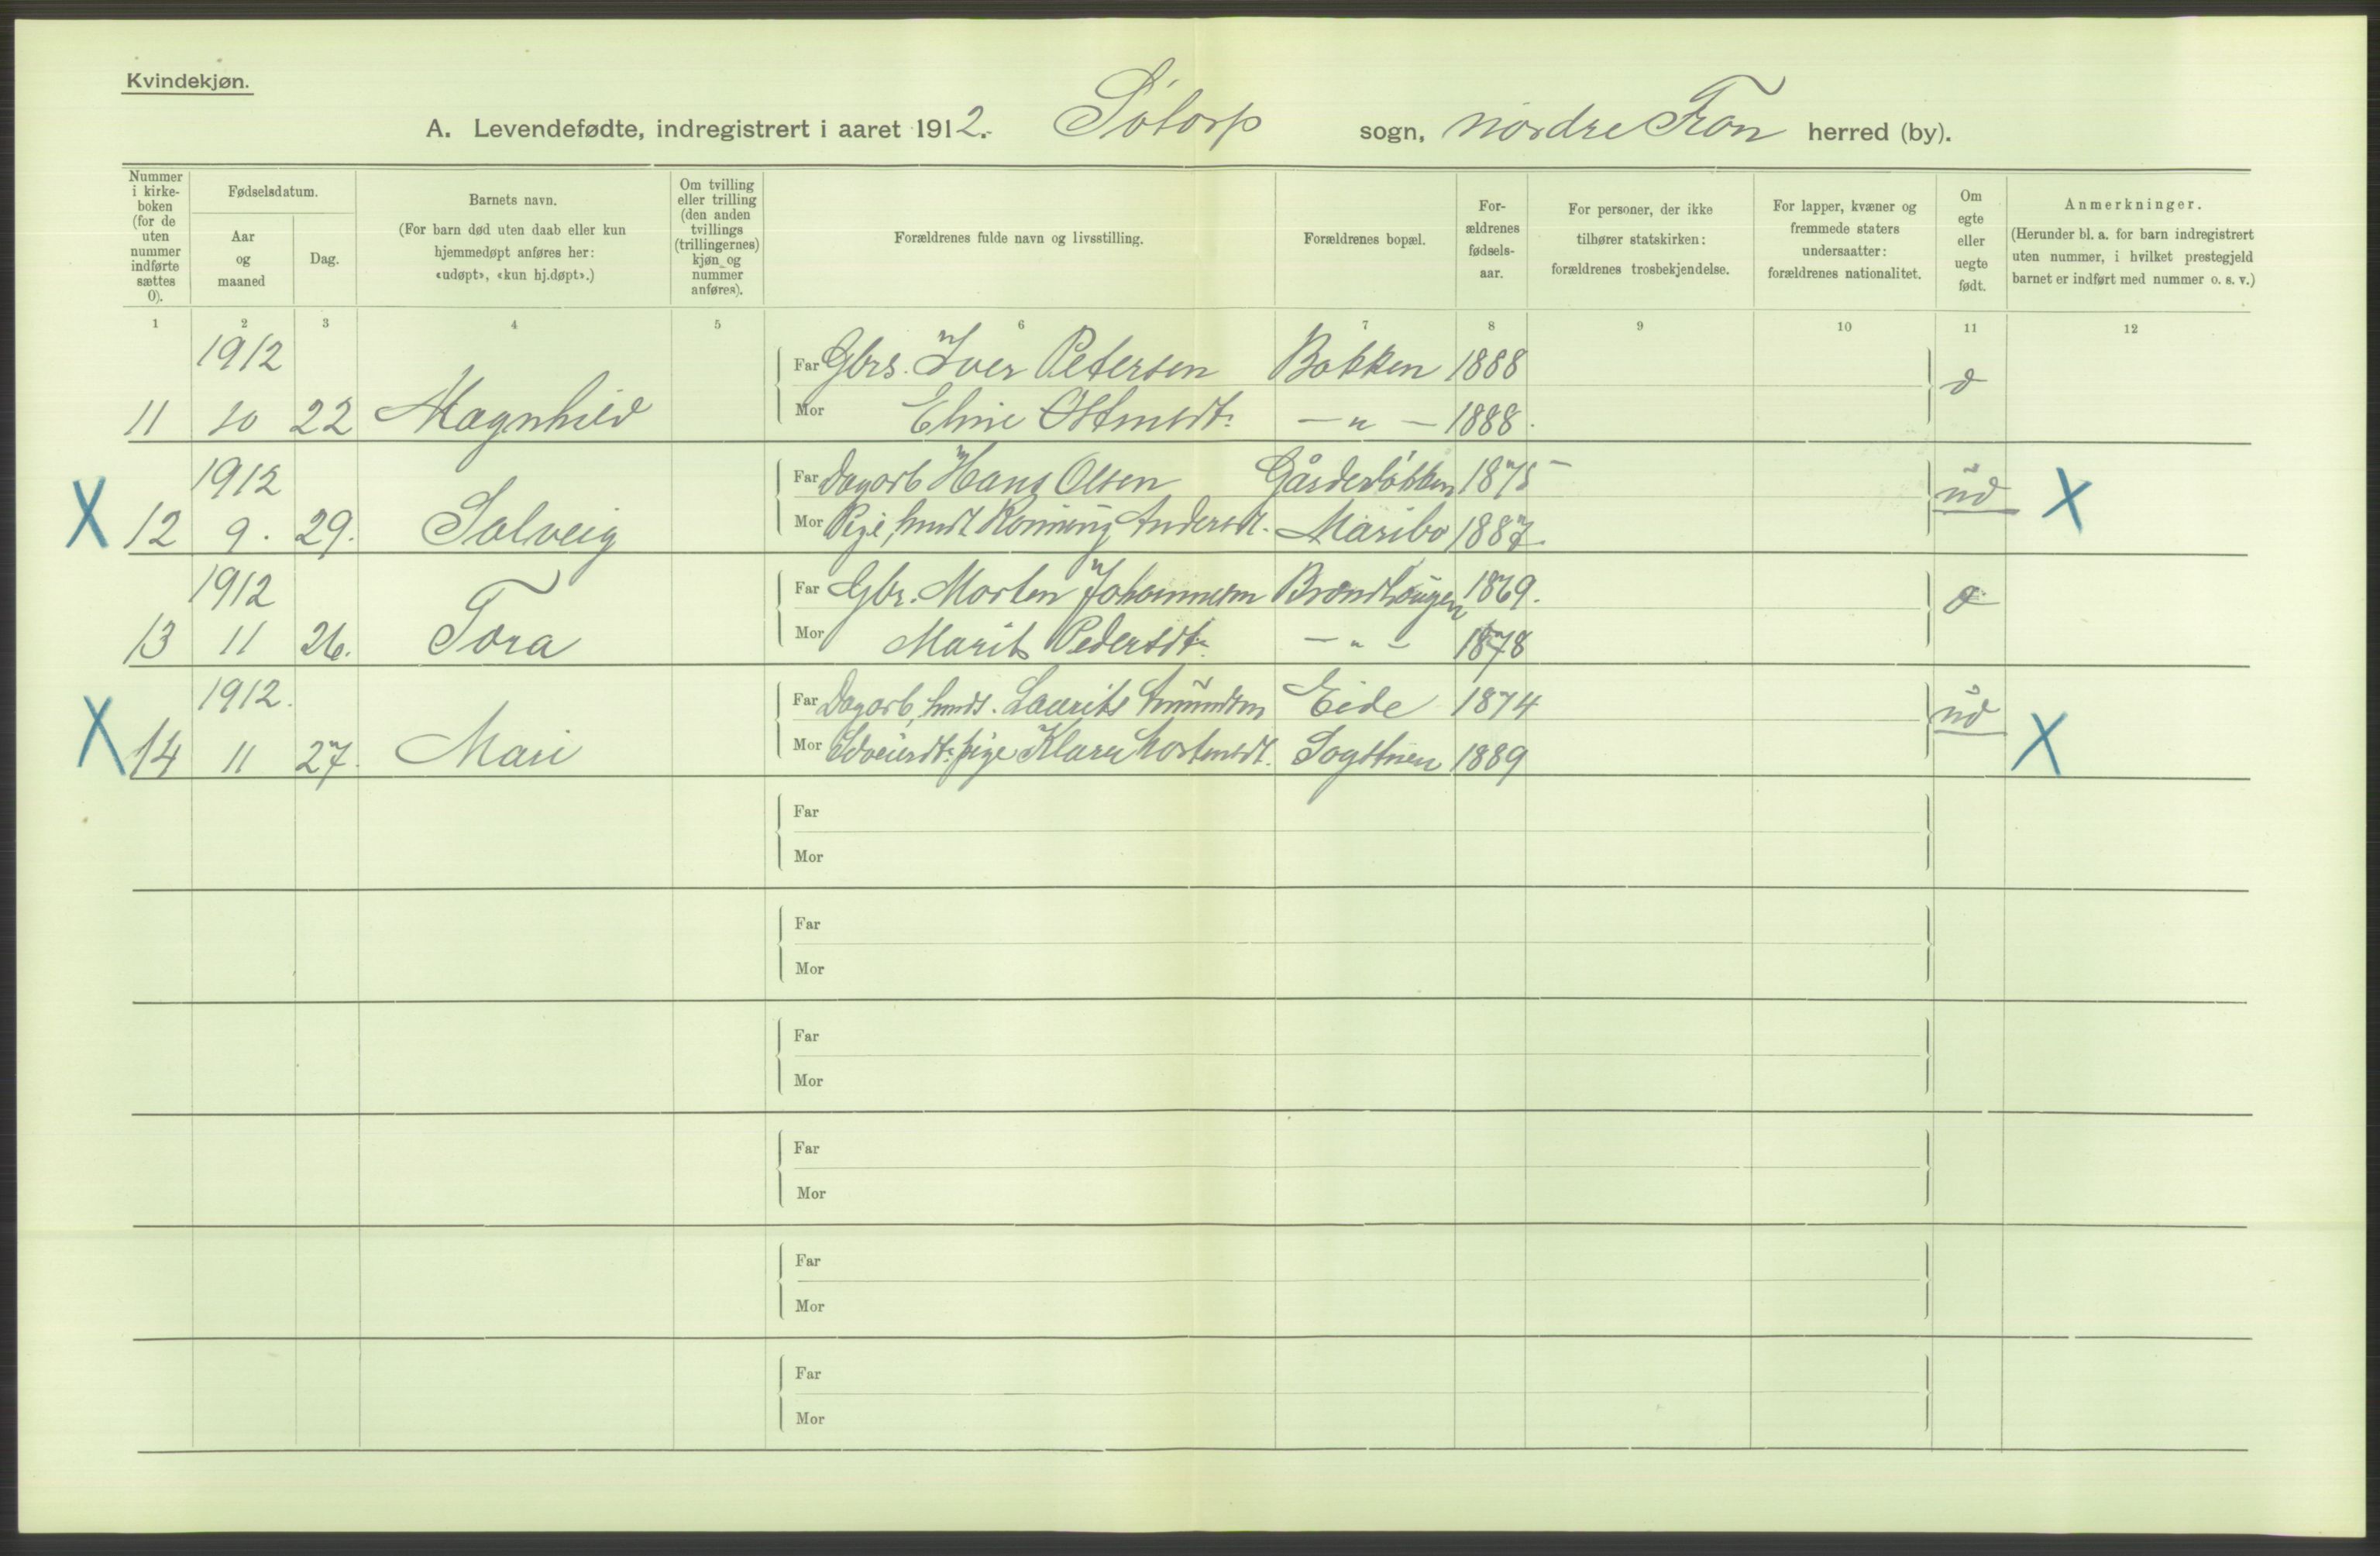 Kvindekjøn.
A. Levendefødte, indregistrert i aaret 1912. Sødorp sogn, Nordre Fron herred (by).
Nummer i kirke- boken (for de uten nummer indførte sættes 0).
Fødselsdatum.
Aar og maaned
Dag.
Barnets navn.
(For barn død uten daab eller kun hjemmedøpt anføres her: «udøpt», «kun hj.døpt».)
Om tvilling eller trilling (den anden tvillings (trillingernes) kjøn og nummer anføres).
Forældrenes fulde navn og livsstilling.
Forældrenes bopæl.
For- ældrenes fødsels- aar.
For personer, der ikke tilhører statskirken: forældrenes trosbekjendelse.
For lapper, kvæner og fremmede staters undersaatter: forældrenes nationalitet.
Om egte eller uegte født.
Anmerkninger.
(Herunder bl. a. for barn indregistrert uten nummer, i hvilket prestegjeld barnet er indført med nummer o. s. v.)
1 2 3 4 5 6 7 8 9 10 11 12
1912 Far Gbrs. Iver Petersen Bakken 1888
11 10 22 Magnhild Mor Eline -"- 1888.
1912 Far Dagarb Hans Olsen 1875 ud X
X 12 9. 29. Solveig Mor Pige, Andersdt. Maribo 1887.
1912 Far Gbr. Morten Johannesen Brandhaugen 1869.
13 11 26. Tora Mor Marit Pedersdt. -"- 1878
1912. Far Dagarb, Laurits Amundsen Eide 1874 ud
X 14 11 27. Mari Mor pige Klara Mortensdt. Sogstuen 1889 X
Far
Mor
Far
Mor
Far
Mor
Far
Mor
Far
Mor
Far
Mor